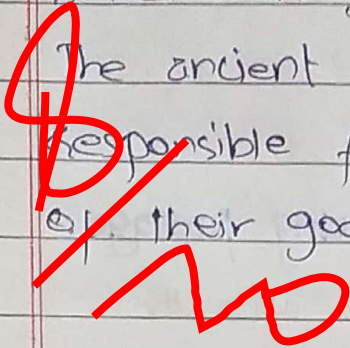 The ancient
Responsible
of their